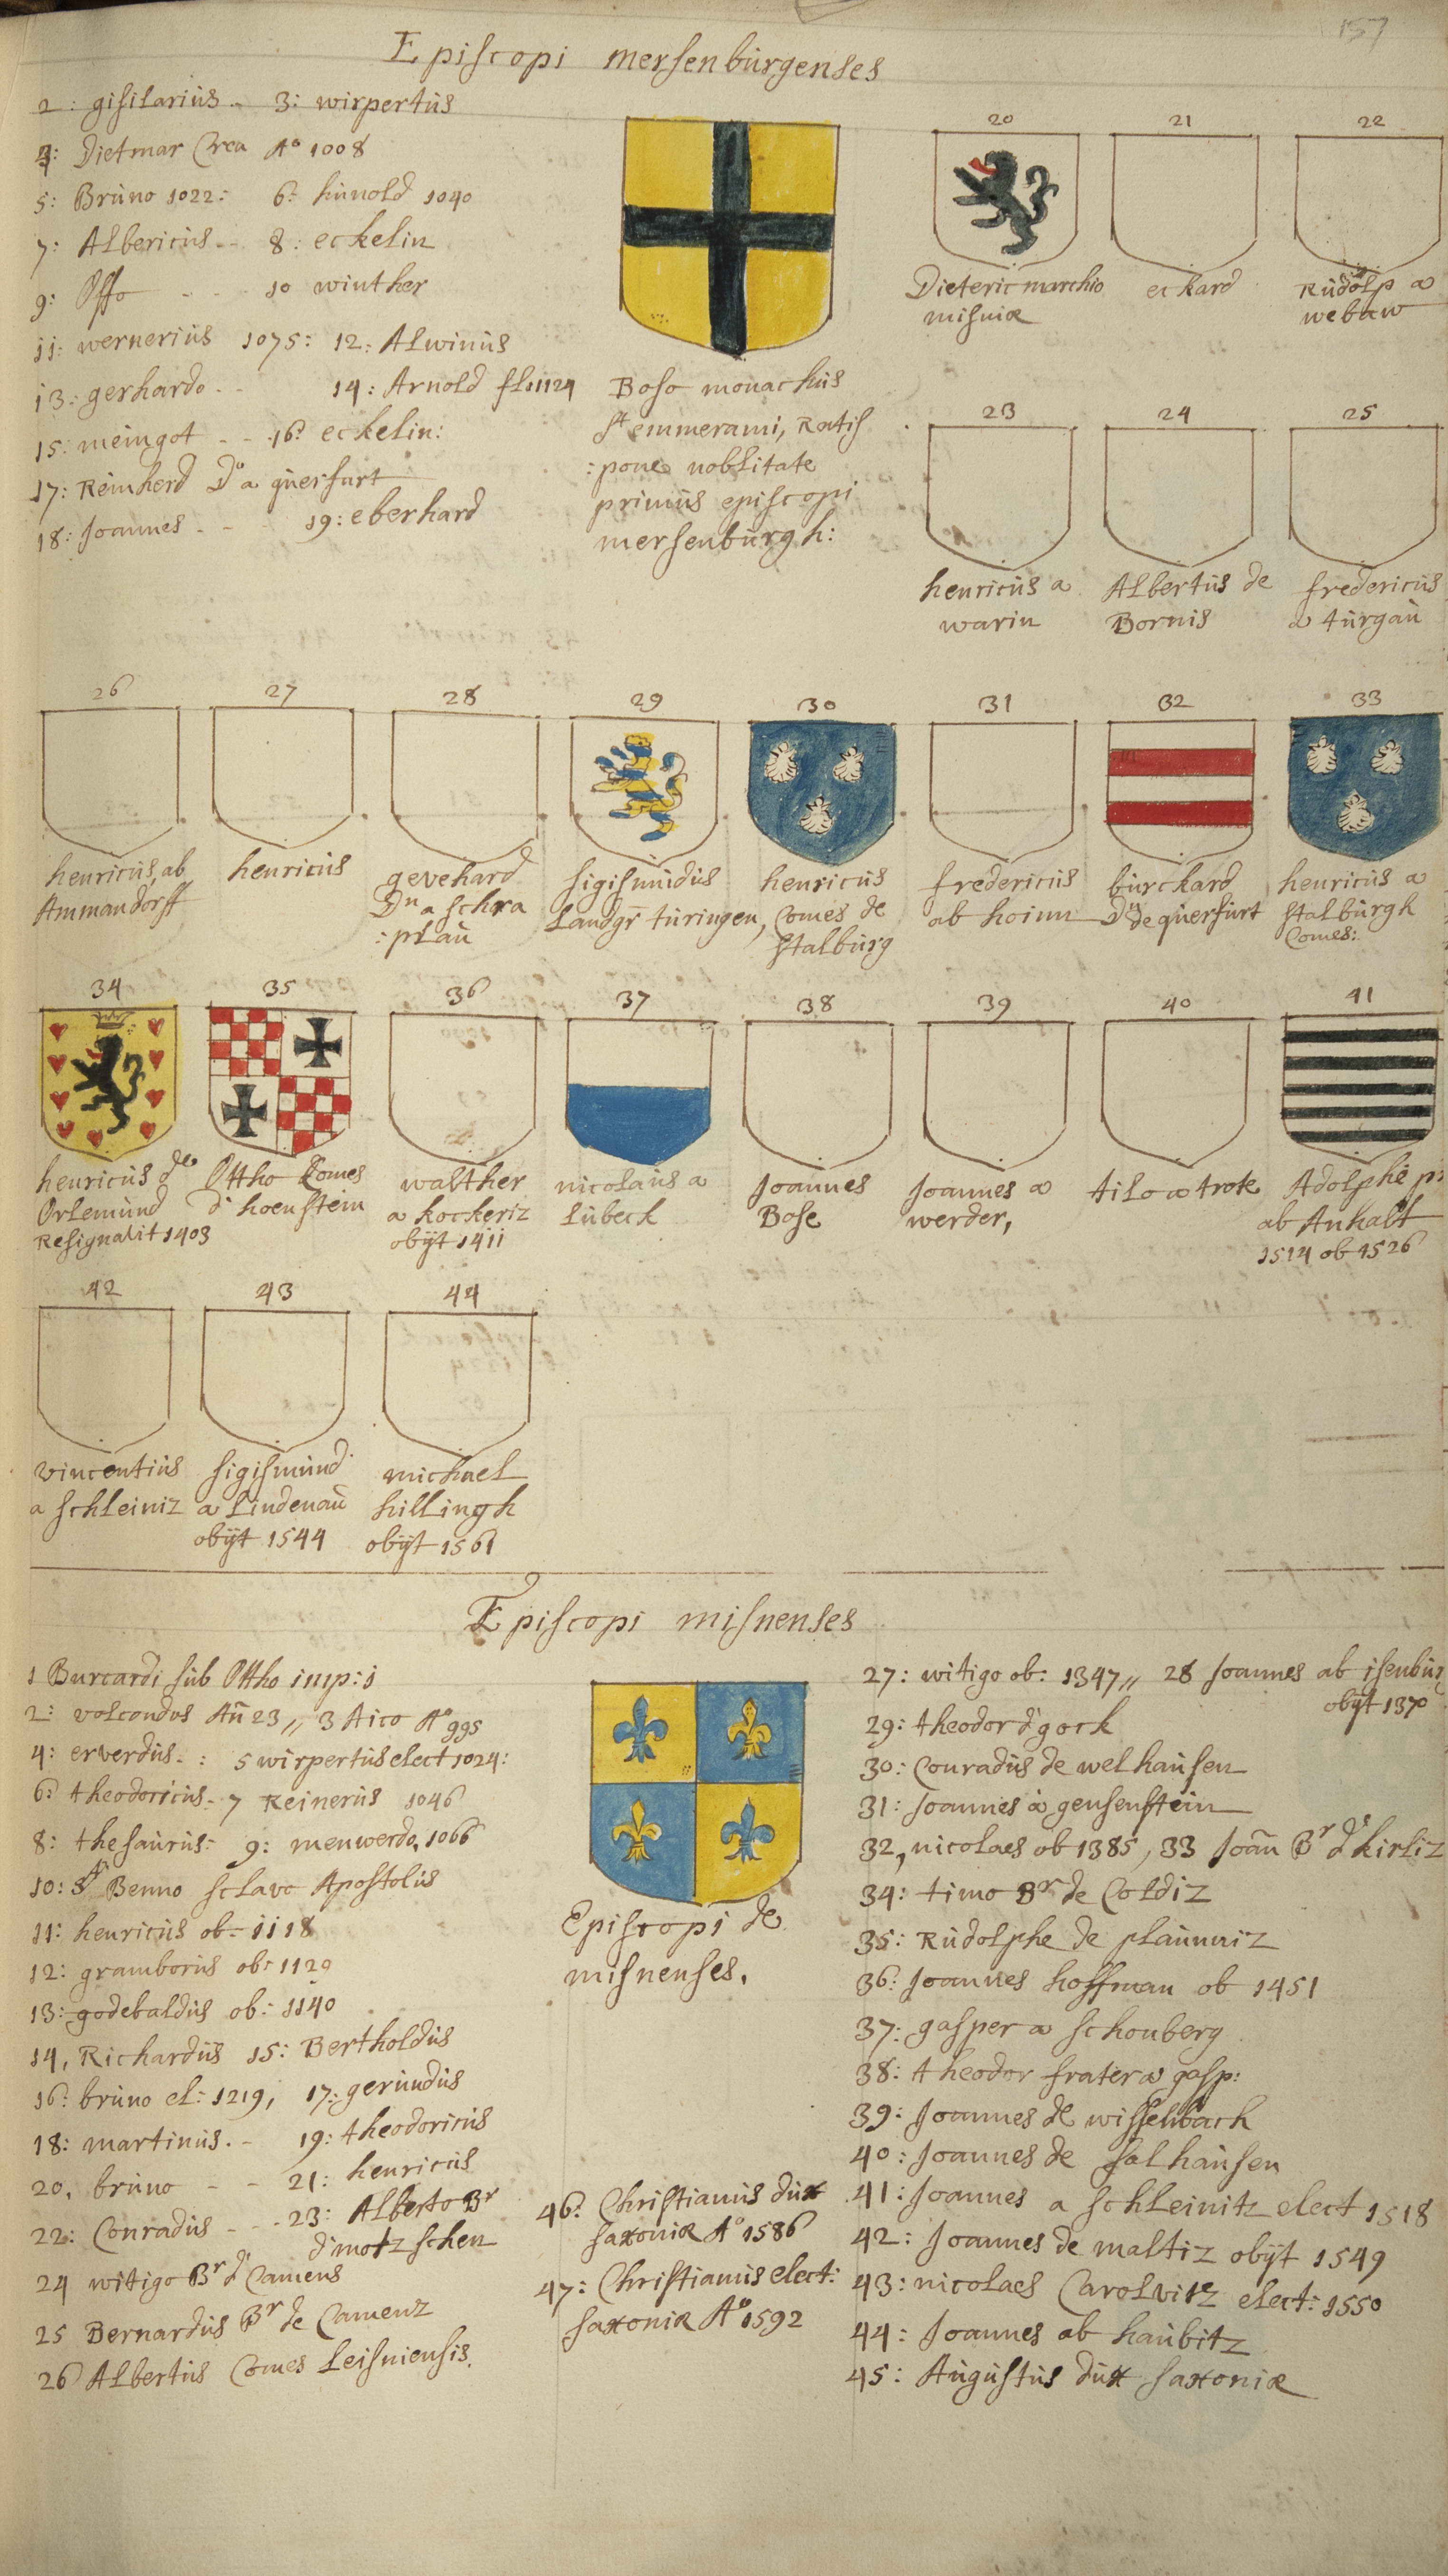 157
Episcopi mersenburgenses
2: gisilarius - 3: wirpertus
4: Dietmar Crea Ao 1008
5: Bruno 1022: 6: hunold 1040
7: Albericus - - 8: eckelin
9: Offo - - - 10 winther
11: wernerius 1075: 12: Alwinus
13: gerhardo - - 14: Arnold fl: 1124
15: meingot - - 16: eckelin:
17: Reinherd Do a querfurt
18: Joannes - - 19: eberhard
Boso monachus
St emmerami, Ratis
:pone noblitate
primus episcopi
mersenburgh:
20 21 22
Dieteric marchio
misniæ
eckard
Rudolp a
webaw
23 24 25
henricus a
warin
Albertus de
Bornis
fredericus
a turgau
26 27 28 29 30 31 32 33
henricus, ab
Ammandorff
henricus
gevehard
Dn a schra
:plau
sigismudus
Landgr turingen,
henricus
Comes de
stalburg
fredericus
ab hoim
burckard
Dn de querfurt
henricus a
stalburgh
Comes:
34 35 36 37 38 39 40 41
henricus de
Orlemund
Resignavit 1403
Ottho Comes
d' hoenstein
walther
a kockeriz
obijt 1411
nicolaus a
Lubeck
Joannes
Bose
Joannes a
werder,
tilo a trote
Adolphe pr
ab Anhalt
1514 ob 1526
42 43 44
vincentius
a schleiniz
sigismund
a Lindenau
obijt 1544
michael
hillingh
obijt 1561
Episcopi misnenses
1 Burcardi sub Ottho imp: i
2: volcondos An 23,, 3 Aico Ao 995
4: erverdus - : 5 wirpertus elect 1024:
6: theodoricus - 7 Reinerus 1046
8: thesaurus: 9: menwerdo, 1066
10: St Benno sclavo Apostolus
11: henricus ob: 1118
12: gramborus ob: 1129
13: godebaldus ob: 1140
14, Richardus 15: Bertholdus
16: bruno el: 1219, 17: gerundus
18: martinus. - 19: theodoricus
20, bruno - - 21: henricus
22: Conradus - - - 23: Alberto Br
d' motzschen
24 witigo Br d' Camens
25 Bernardus Br de Camenz
26 Albertus Comes Leisniensis.
Episcopi de
misnenses.
46: Christianus dux
saxoniæ Ao 1586
47: Christianus elect:
saxoniæ Ao 1592
27: witigo ob: 1347,, 28 Joannes ab isenbur
obijt 1370
29: theodor d' gock
30: Conradus de welhausen
31: Joannes a gensenstein
32, nicolaes ob 1385, 33 Joan Br d' kirliz
34: timo Br de Coldiz
35: Rudolphe de plaunniz
36: Joannes hoffman ob 1451
37: gasper a schonberg
38: theodor frater a gasp:
39: Joannes de wissenbach
40: Joannes de salhausen
41: Joannes a schleinitz elect 1518
42: Joannes de maltiz obijt 1549
43: nicolaes Carolvitz elect: 1550
44: Joannes ab haubitz
45: Augustus dux saxoniæ